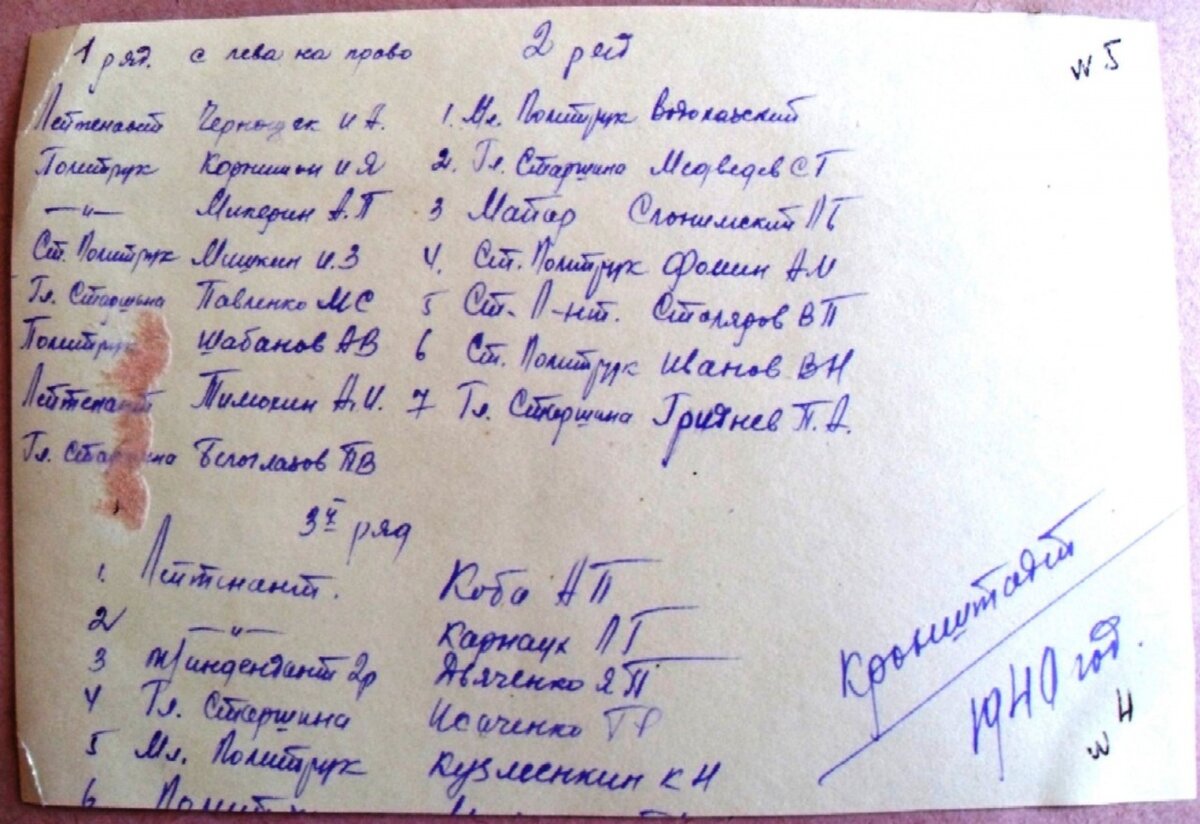 1 ряд. с лева на право
Лейтенант Чернощек И А.
Политрук Коржишин И Я
—"— Микерин А.П
Ст. Политрук Мишкин И.З
Гл. Старшина Павленко МС
Политрук Шабанов АВ
Лейтенант Тимохин А.И.
Гл. Старшина Белоглазов ПВ
2 ряд
1. Мл. Политрук Водолазский
2. Гл. Старшина Медведев С Г
3 Майор Слонимский Л Б
4. Ст. Политрук Фомин А М
5 Ст. Л-нт. Столядов В П
6 Ст. Политрук Иванов ВН
7 Гл. Старшина Гриднев П.А.
3й ряд
1. Лейтенант. Коба А П
2 —"— Карнаук Л Г
3 2р Дьяченко Я П
4 Гл. Старшина Исаченко
5 Мл. Политрук Кузменкин К Н
6 Политрук
Кронштадт
1940 год.
N 5
N 4